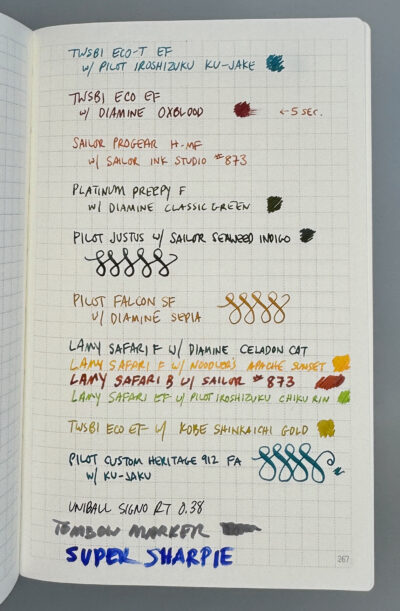 TWSBI ECO-T EF
W/ PILOT IROSHIZUKU KU-JAKE
TWSBI ECO EF
W/ DIAMINE OXBLOOD
←5 SEC.
SAILOR PROGEAR H-MF
W/ SAILOR INK STUDIO #873
PLATINUM PREPPY F
W/ DIAMINE CLASSIC GREEN
PILOT JUSTUS W/ SAILOR SEAWEED INDIGO
PILOT FALCON SF
W/ DIAMINE SEPIA
LAMY SAFARI F W/ DIAMINE CELADON CAT
LAMY SAFARI F W/ NOODLER'S APACHE SUNSET
LAMY SAFARI B W/ SAILOR #873
LAMY SAFARI EF W/ PILOT IROSHIZUKU CHIKU RIN
TWSBI ECO EF W/ KOBE SHINKAICHI GOLD
PILOT CUSTOM HERITAGE 912 FA
W/ KU-JAKU
UNIBALL SIGNO RT 0.38
TOMBOW MARKER
SUPER SHARPIE
267